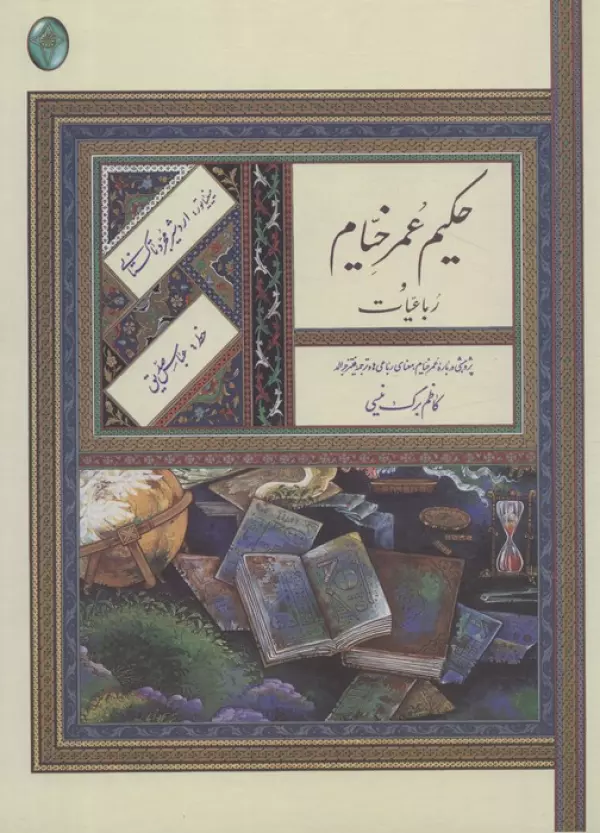 حکیم عمر خیّام
و
رباعیّات
پژوهشی درباره عمر خیام، معنای رباعی ها و ترجمه فیتزجرالد
کاظم برگ نیسی
مینیاتور: اردشیر مجرد تاکستانی
خط: عباس صدیق